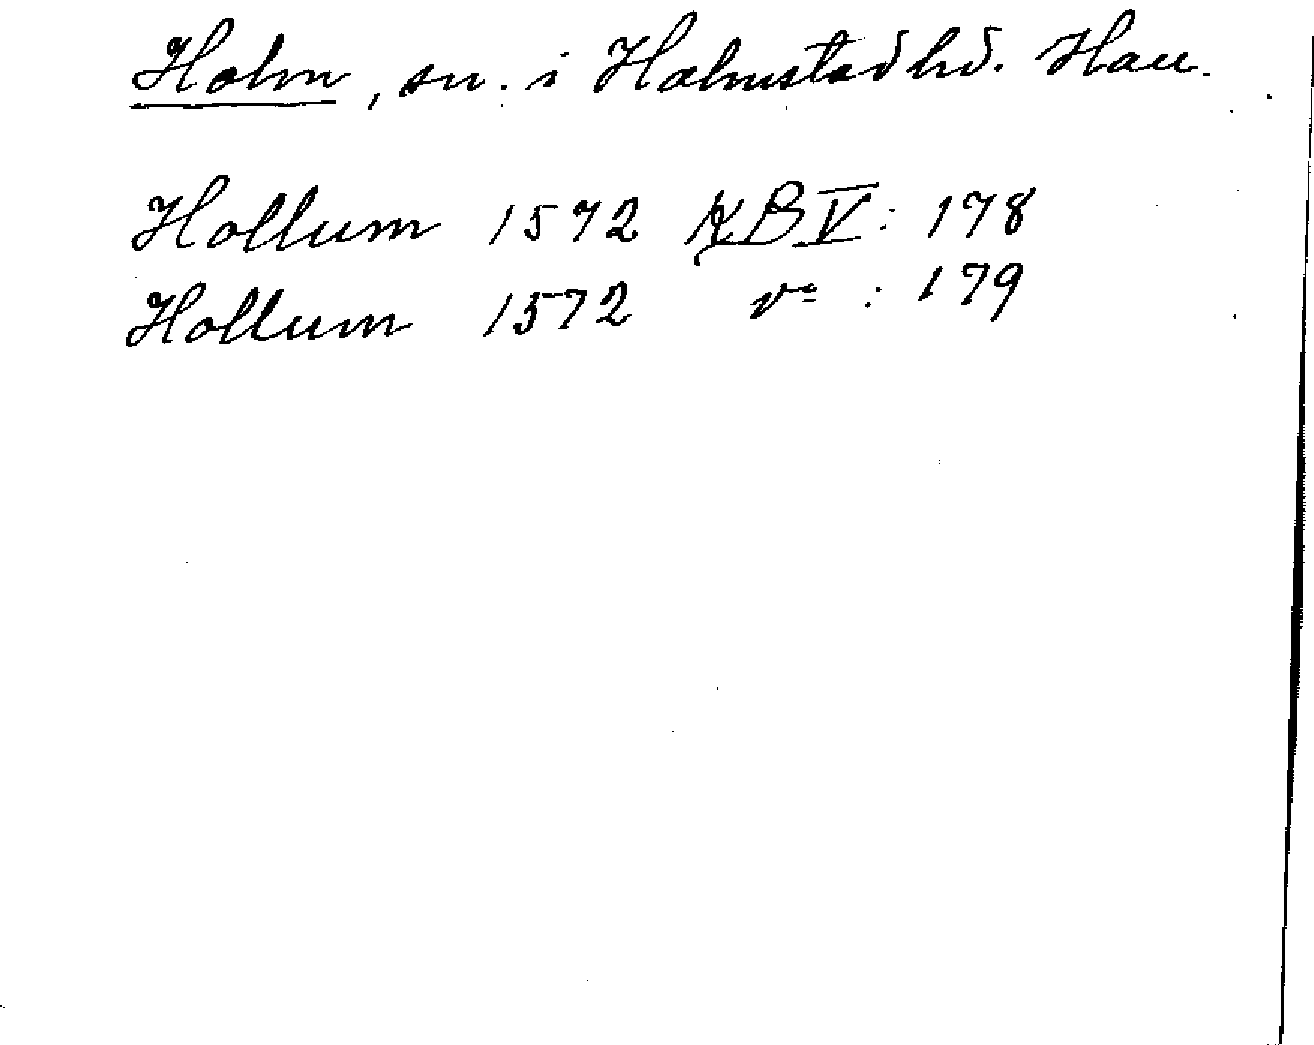 Holm, sn. i Halmstad hd. Hall.
Hollum 1572 KB V : 178
Hollum 1572 v= : 179